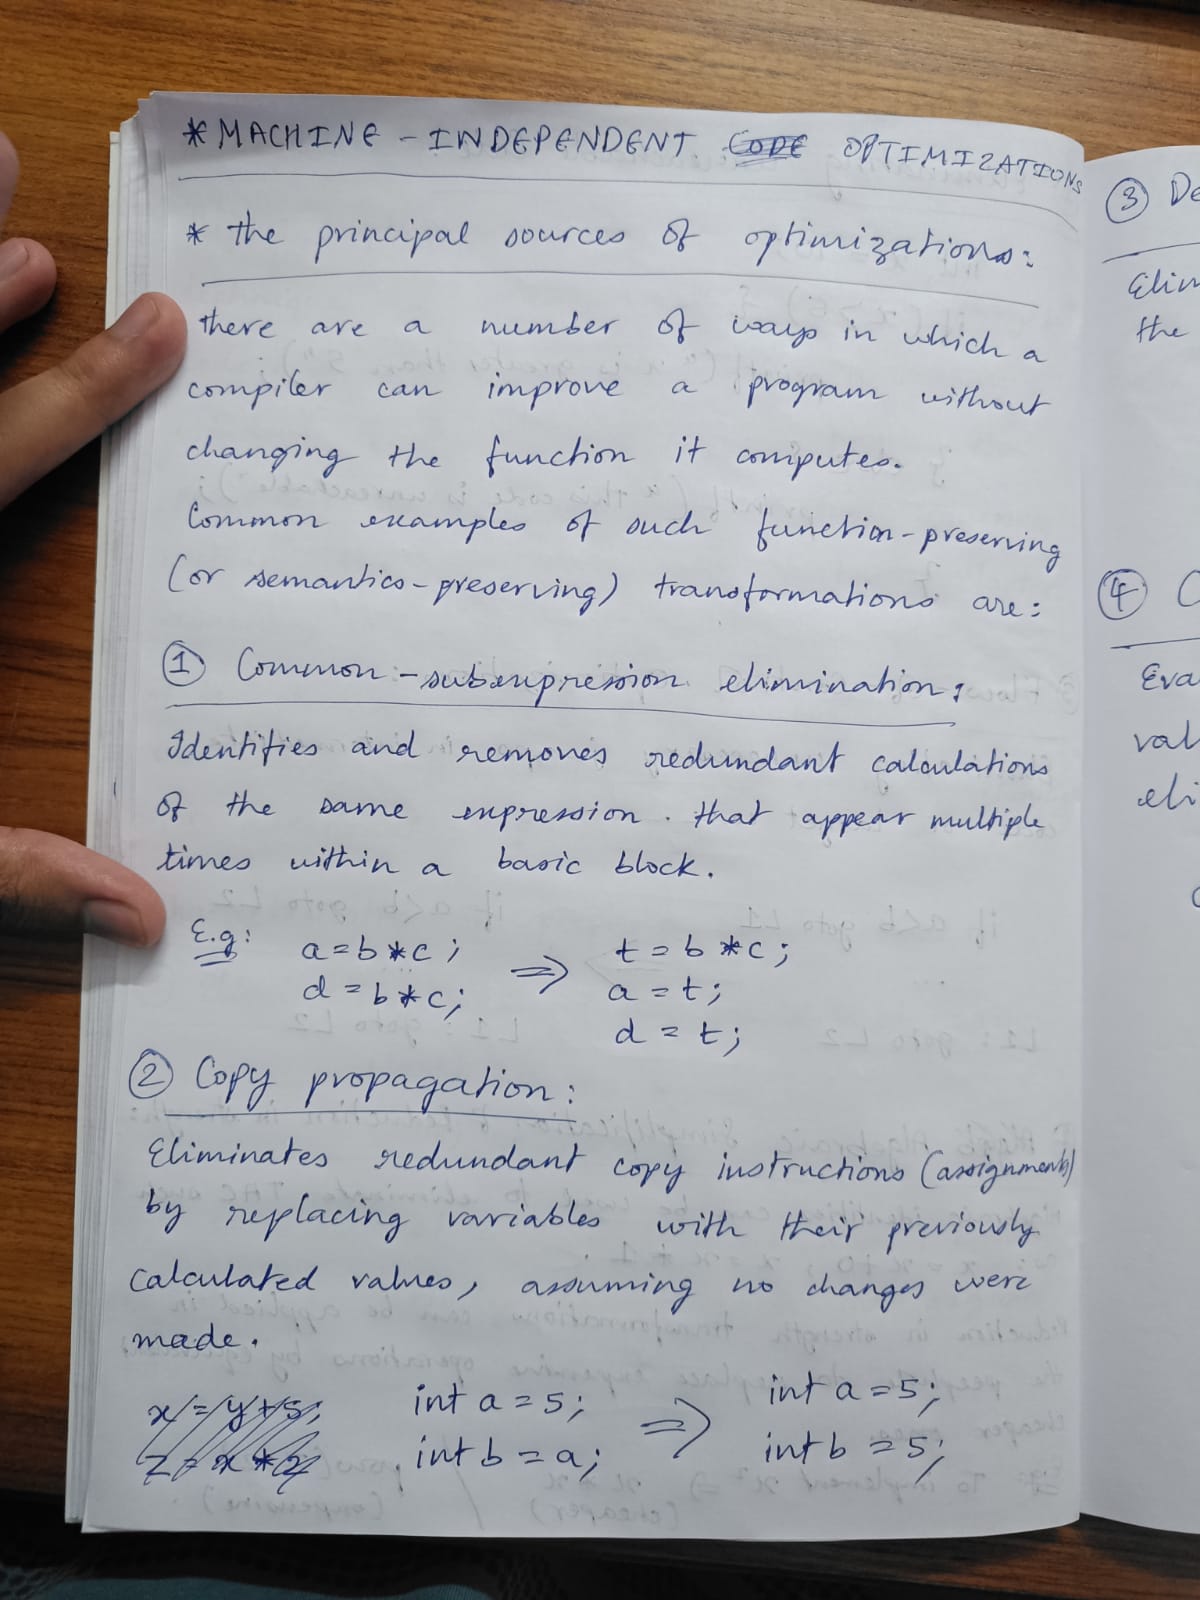 * MACHINE - INDEPENDENT CODE OPTIMIZATIONS
* the principal sources of optimizations:
there are a number of ways in which a
compiler can improve a program without
changing the function it computes.
Common examples of such function-preserving
(or semantics-preserving) transformations are:
① Common-subexpression elimination:
Identifies and removes redundant calculations
of the same expression. that appear multiple
times within a basic block.
E.g: a=b*c; ⇒ t=b*c;
d=b*c; a=t;
d=t;
② Copy propagation:
Eliminates redundant copy instructions (assignments)
by replacing variables with their previously
calculated values, assuming no changes were
made.
x=y+5; int a=5; ⇒ int a=5;
z=x*2 int b=a; int b=5;
③ De
Elim
the
④ C
Eva
val
eli